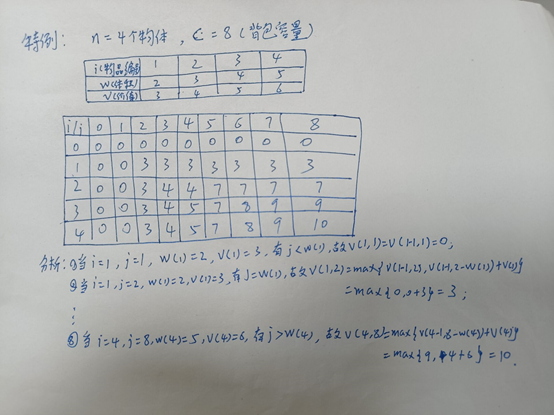 举例： n=4个物体，C=8（背包容量）
i(物品编号) 1 2 3 4
w(体积) 2 3 4 5
v(价值) 3 4 5 6
i/j 0 1 2 3 4 5 6 7 8
0 0 0 0 0 0 0 0 0 0
1 0 0 3 3 3 3 3 3 3
2 0 0 3 4 4 7 7 7 7
3 0 0 3 4 5 7 8 9 9
4 0 0 3 4 5 7 8 9 10
分析：①当i=1, j=1, w(1)=2, v(1)=3, 有j<w(1), 故V(1,1)=V(1-1,1)=0;
②当i=1, j=2, w(1)=2, v(1)=3, 有j=w(1), 故V(1,2)=max{V(1-1,2), V(1-1,2-w(1))+v(1)}
=max{0,0+3}=3;
⋮
当i=4, j=8, w(4)=5, v(4)=6, 有j>w(4), 故V(4,8)=max{V(4-1,8-w(4))+v(4)}
=max{9, 4+6}=10.